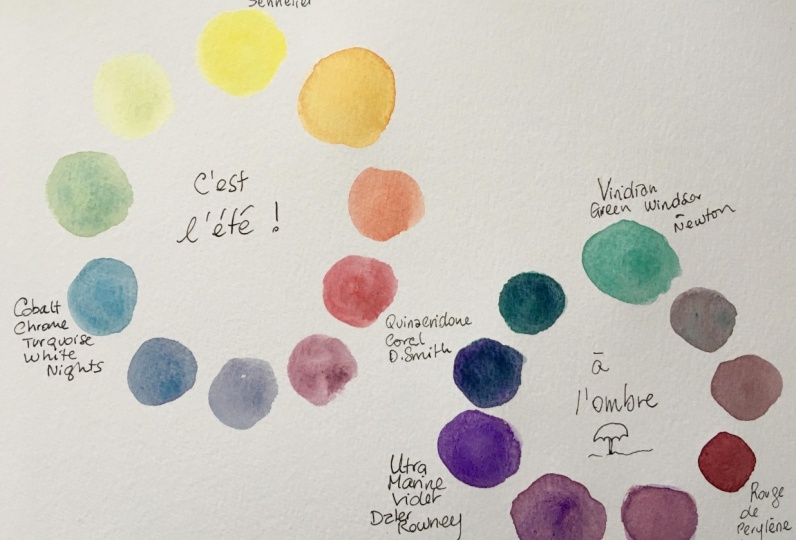 Sennelier
C'est
l'été !
Cobalt
Chrome
Turquoise
White
Nights
Quinacridone
Coral
D.Smith
Viridian
Green Windsor
Newton
à
l'ombre
Utra
Marine
Violet
Daler
Rowney
Rouge
de
Perylène